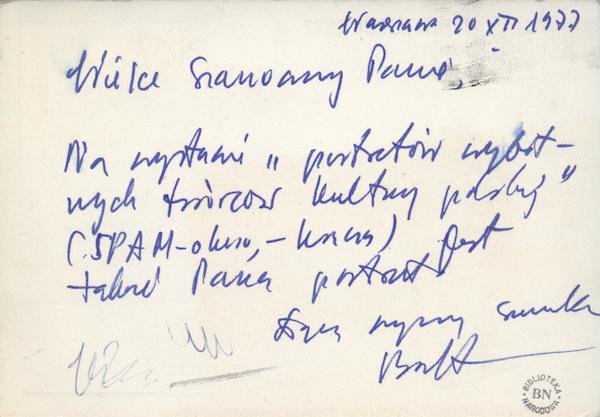 Warszawa 20 XII 1977
Wielce Szanowny Panie,
Na wystawie „portretów wybit-
nych twórców kultury polskiej”
(SPAM-
także Pana portret jest
Łączę wyrazy szacunku
BIBLIOTEKA
BN
NARODOWA